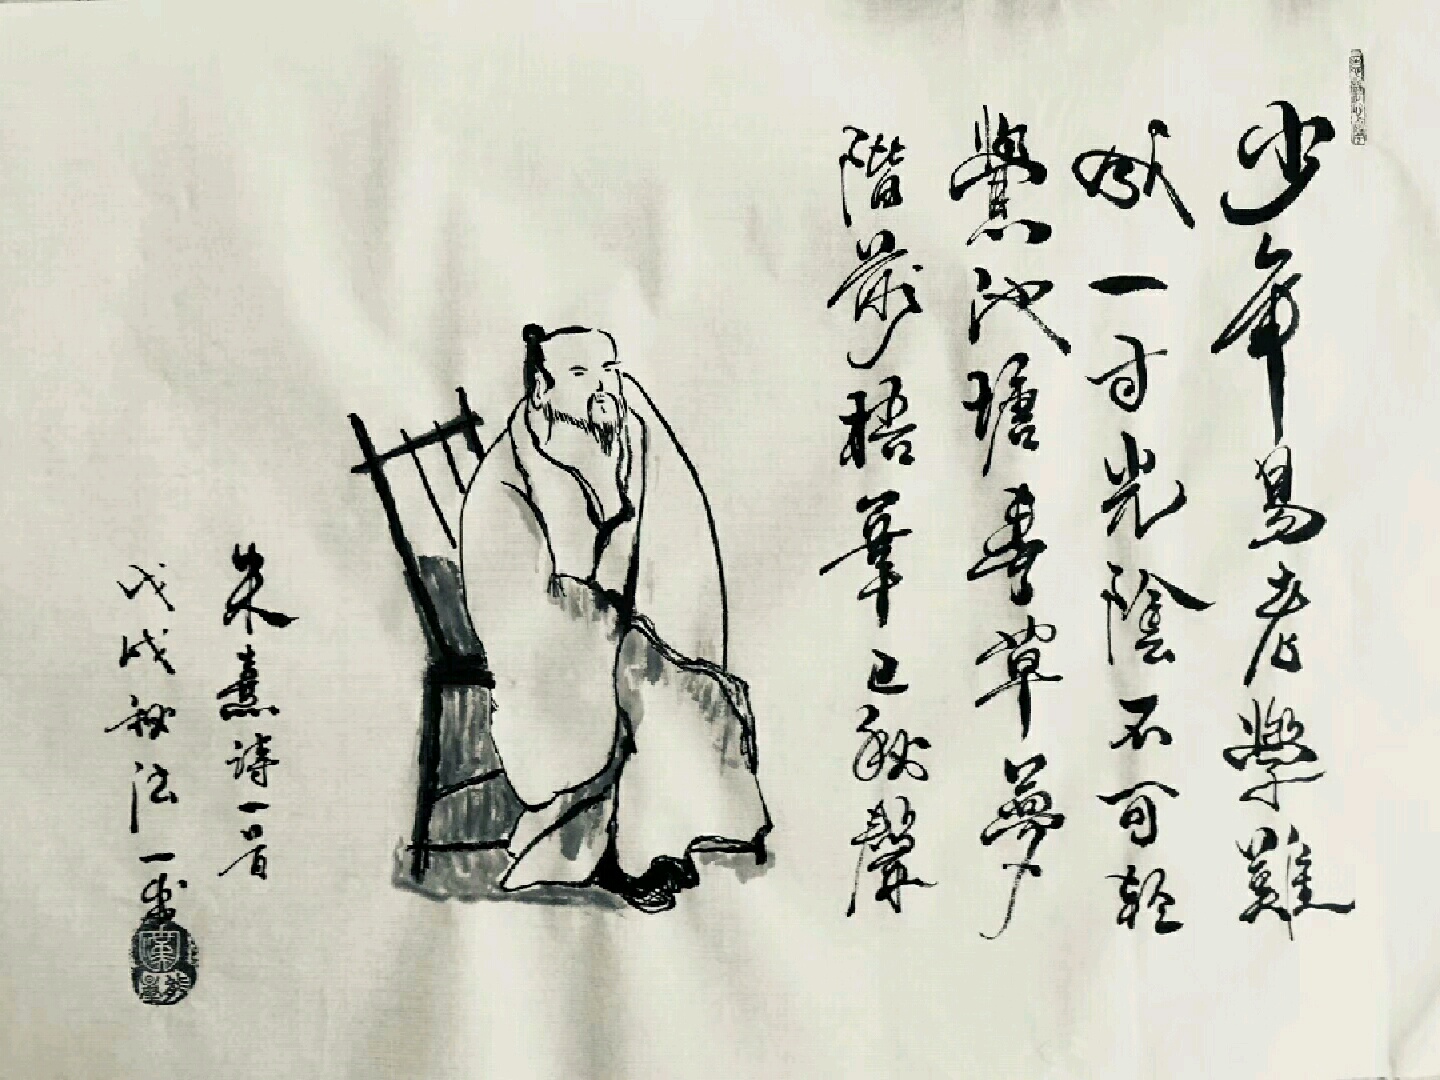 少年易老學難
成一寸光陰不可輕
覺池塘春草夢
階前梧葉已秋聲
朱熹詩一首
戊戌秋法一書